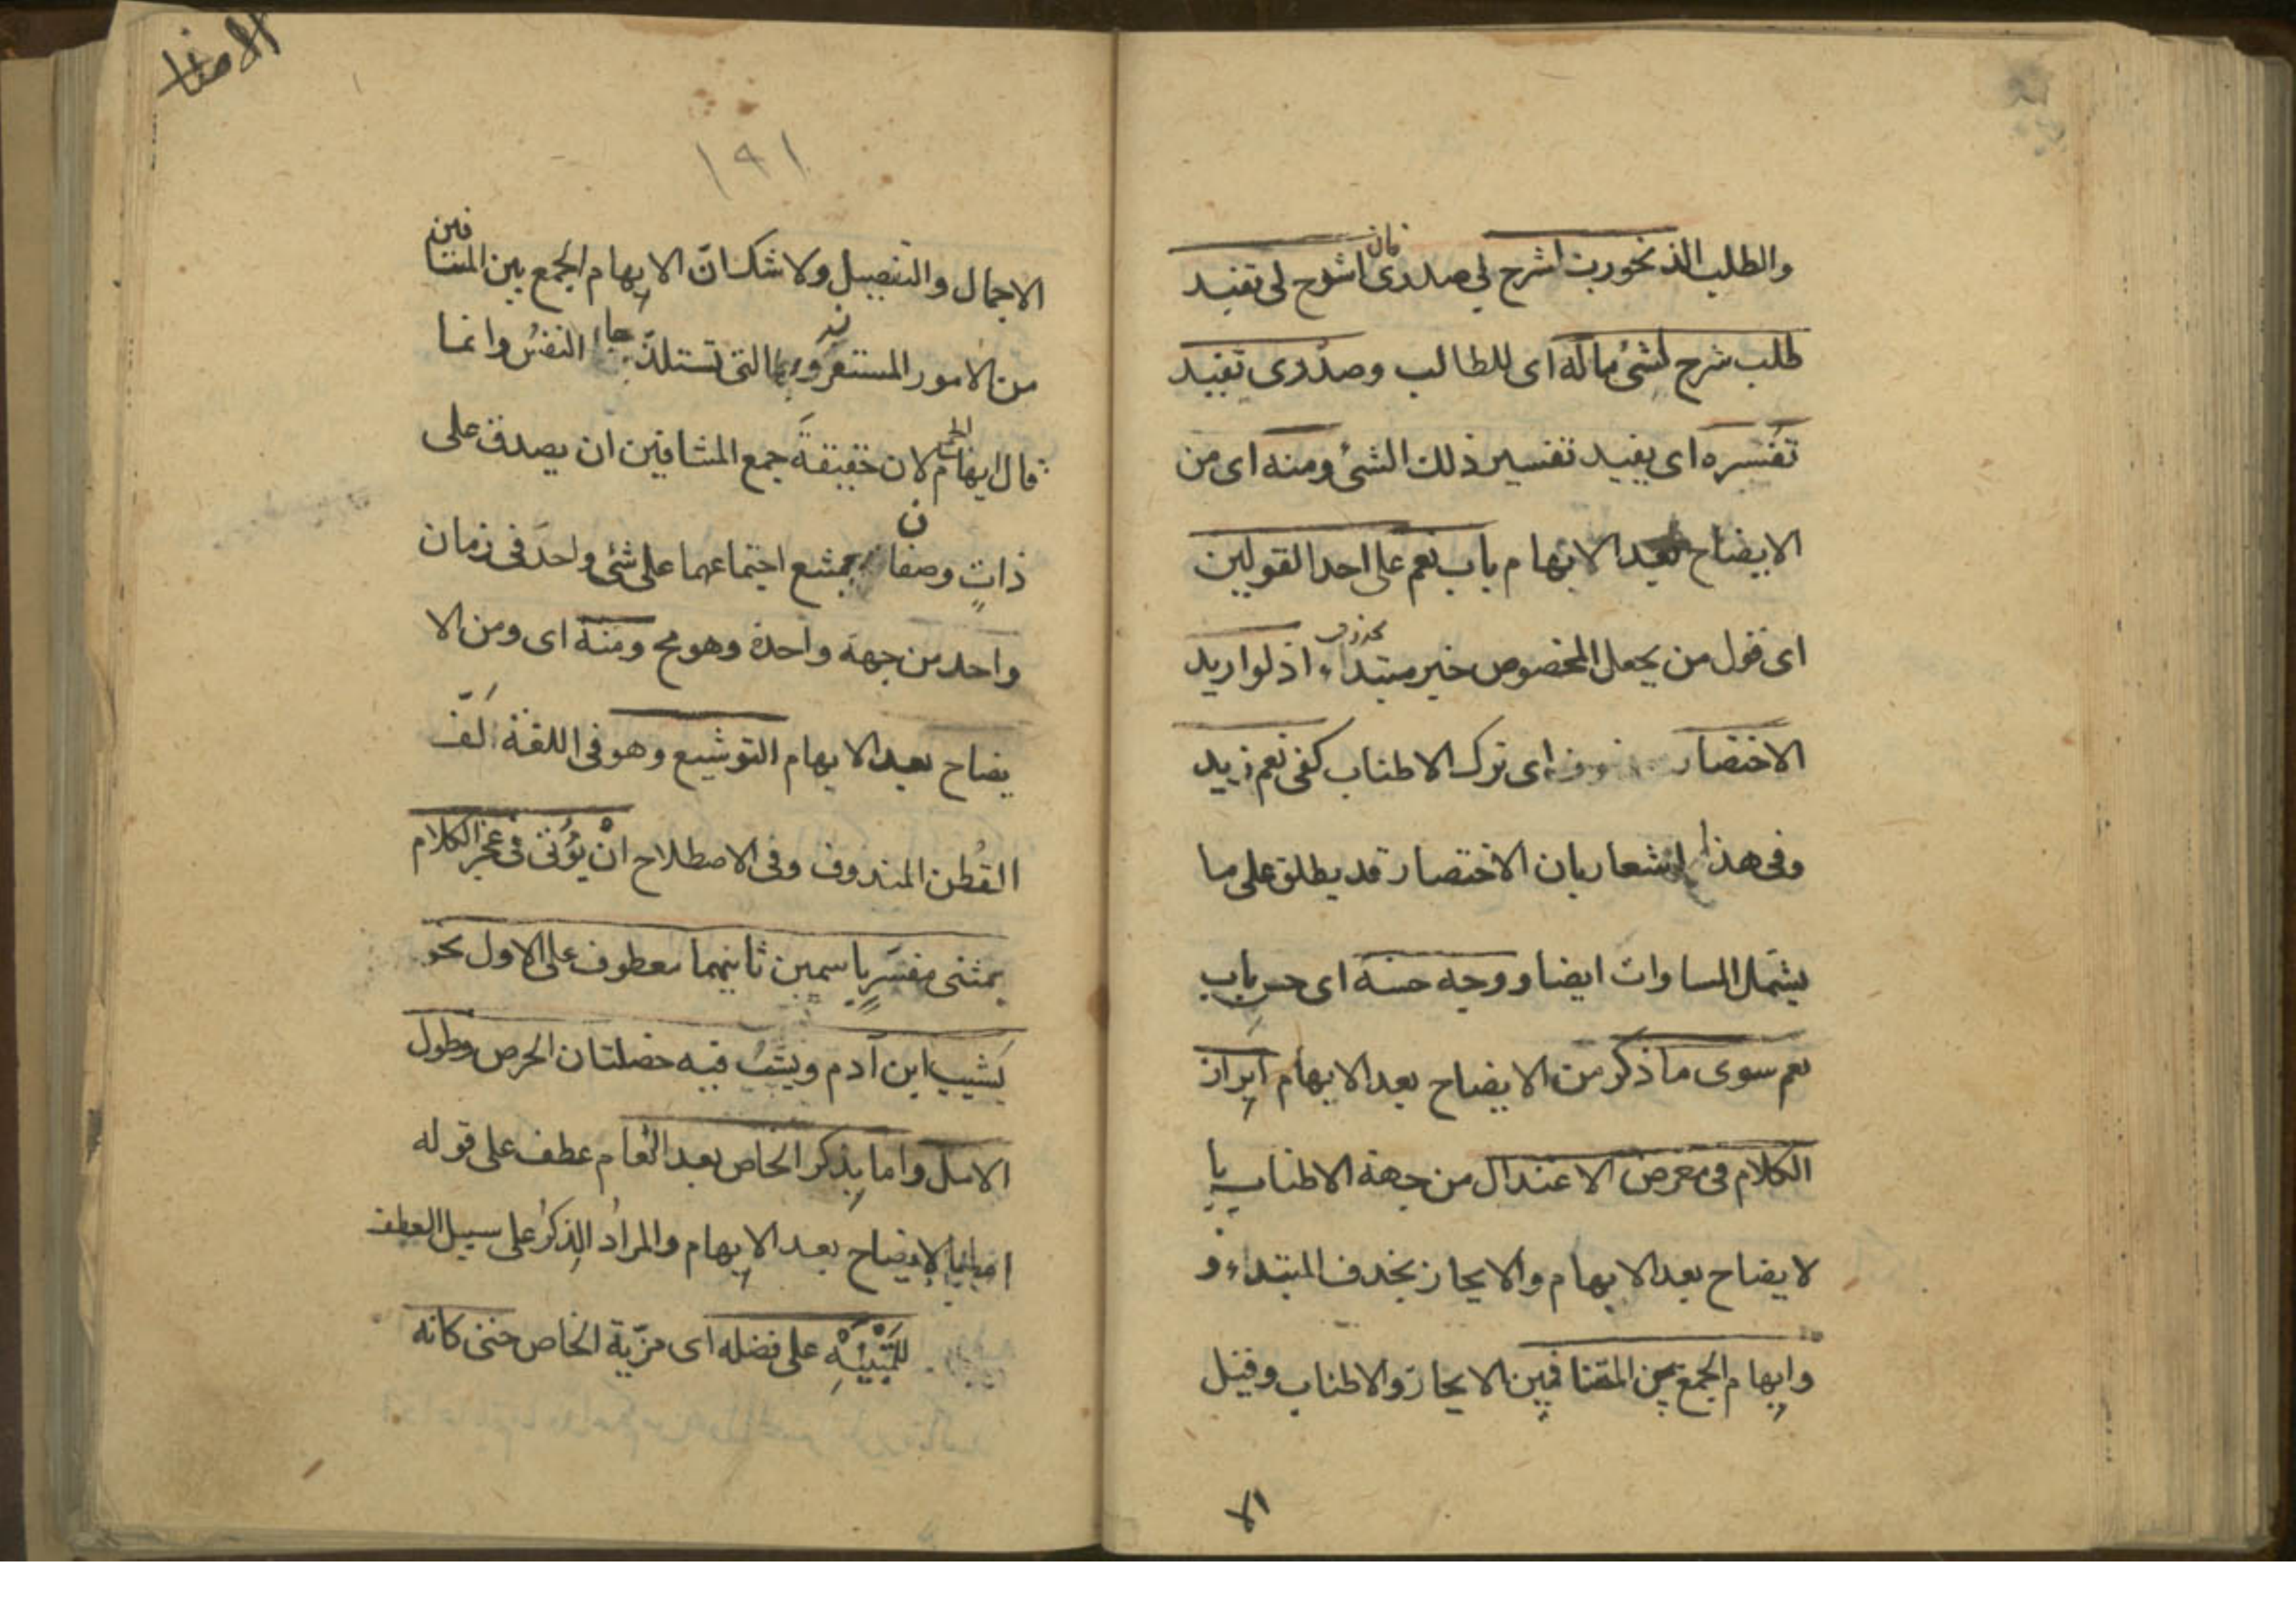 والطلب الذ نحو رب اشرح لي صدرى فان اشرح لى تفيد
طلب شرح لشئ ما له اى للطالب وصدرى تفيد
تفسره اى يفيد تفسير ذلك الشئ ومنه اى من
الايضاح بعد الابهام باب نعم على احد القولين
اى قول من يجعل المخصوص خبر مبتداء محذوف اذ لو اريد
الاختصار اى ترك الاطناب كفى نعم زيد
وفى هذا اشعار بان الاختصار قد يطلق على ما
يشمل المساوات ايضا ووجه حسنه اى حسن باب
نعم سوى ما ذكر من الايضاح بعد الابهام ابراز
الكلام فى معرض الاعتدال من جهة الاطناب با
لايضاح بعد الابهام والايجاز بحذف المبتداء و
وايهام الجمع بين المتنافيين الايجاز والاطناب وقيل
الا
١٩١
الاجمال والتفصيل ولا شك ان الايهام الجمع بين المتنافين
من الامور المستغربة التى تستلذ بها النفس وانما
قال ايهام الجمع لان حقيقة جمع المتنافيين ان يصدق على
ذات وصفان يمتنع اجتماعهما على شئ واحد فى زمان
واحد من جهة واحدة وهو مح ومنه اى ومن الا
يضاح بعد الابهام التوشيع وهو فى اللغة لف
القطن المندوف وفى الاصطلاح ان يؤتى فى عجز الكلام
بمثنى مفسر باسمين ثانيهما معطوف على الاول نحو
يشيب ابن ادم ويشب فيه خصلتان الحرص وطول
الامل واما بذكر الخاص بعد العام عطف على قوله
اما بالايضاح بعد الابهام والمراد الذكر على سبيل العطف
للتنبيه على فضله اى مزية الخاص حتى كانه